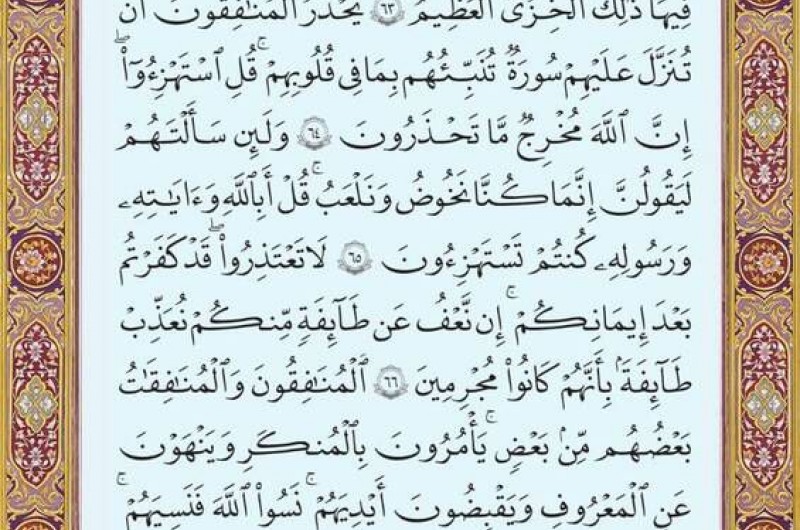 فِيهَا ذَٰلِكَ ٱلْخِزْىُ ٱلْعَظِيمُ ٦٣ يَحْذَرُ ٱلْمُنَٰفِقُونَ أَن
تُنَزَّلَ عَلَيْهِمْ سُورَةٌ تُنَبِّئُهُم بِمَا فِى قُلُوبِهِمْ ۚ قُلِ ٱسْتَهْزِءُوٓا۟
إِنَّ ٱللَّهَ مُخْرِجٌ مَّا تَحْذَرُونَ ٦٤ وَلَئِن سَأَلْتَهُمْ
لَيَقُولُنَّ إِنَّمَا كُنَّا نَخُوضُ وَنَلْعَبُ ۚ قُلْ أَبِٱللَّهِ وَءَايَٰتِهِۦ
وَرَسُولِهِۦ كُنتُمْ تَسْتَهْزِءُونَ ٦٥ لَا تَعْتَذِرُوا۟ ۖ قَدْ كَفَرْتُم
بَعْدَ إِيمَٰنِكُمْ ۚ إِن نَّعْفُ عَن طَآئِفَةٍ مِّنكُمْ نُعَذِّبْ
طَآئِفَةًۢ بِأَنَّهُمْ كَانُوا۟ مُجْرِمِينَ ٦٦ ٱلْمُنَٰفِقُونَ وَٱلْمُنَٰفِقَٰتُ
بَعْضُهُم مِّنۢ بَعْضٍ ۚ يَأْمُرُونَ بِٱلْمُنكَرِ وَيَنْهَوْنَ
عَنِ ٱلْمَعْرُوفِ وَيَقْبِضُونَ أَيْدِيَهُمْ ۚ نَسُوا۟ ٱللَّهَ فَنَسِيَهُمْ ۚ